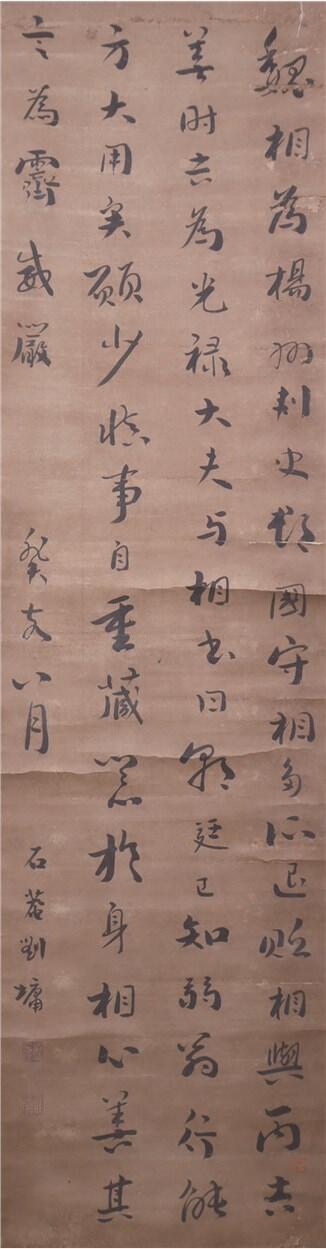 魏相為楊州刺史郡國守相多所退貶相與丙吉
善时吉為光禄大夫与相书曰朝廷已知弱翁行能
方大用矣願少慎事自重藏器於身相心善其
言為霽威嚴 癸亥八月 石菴劉墉